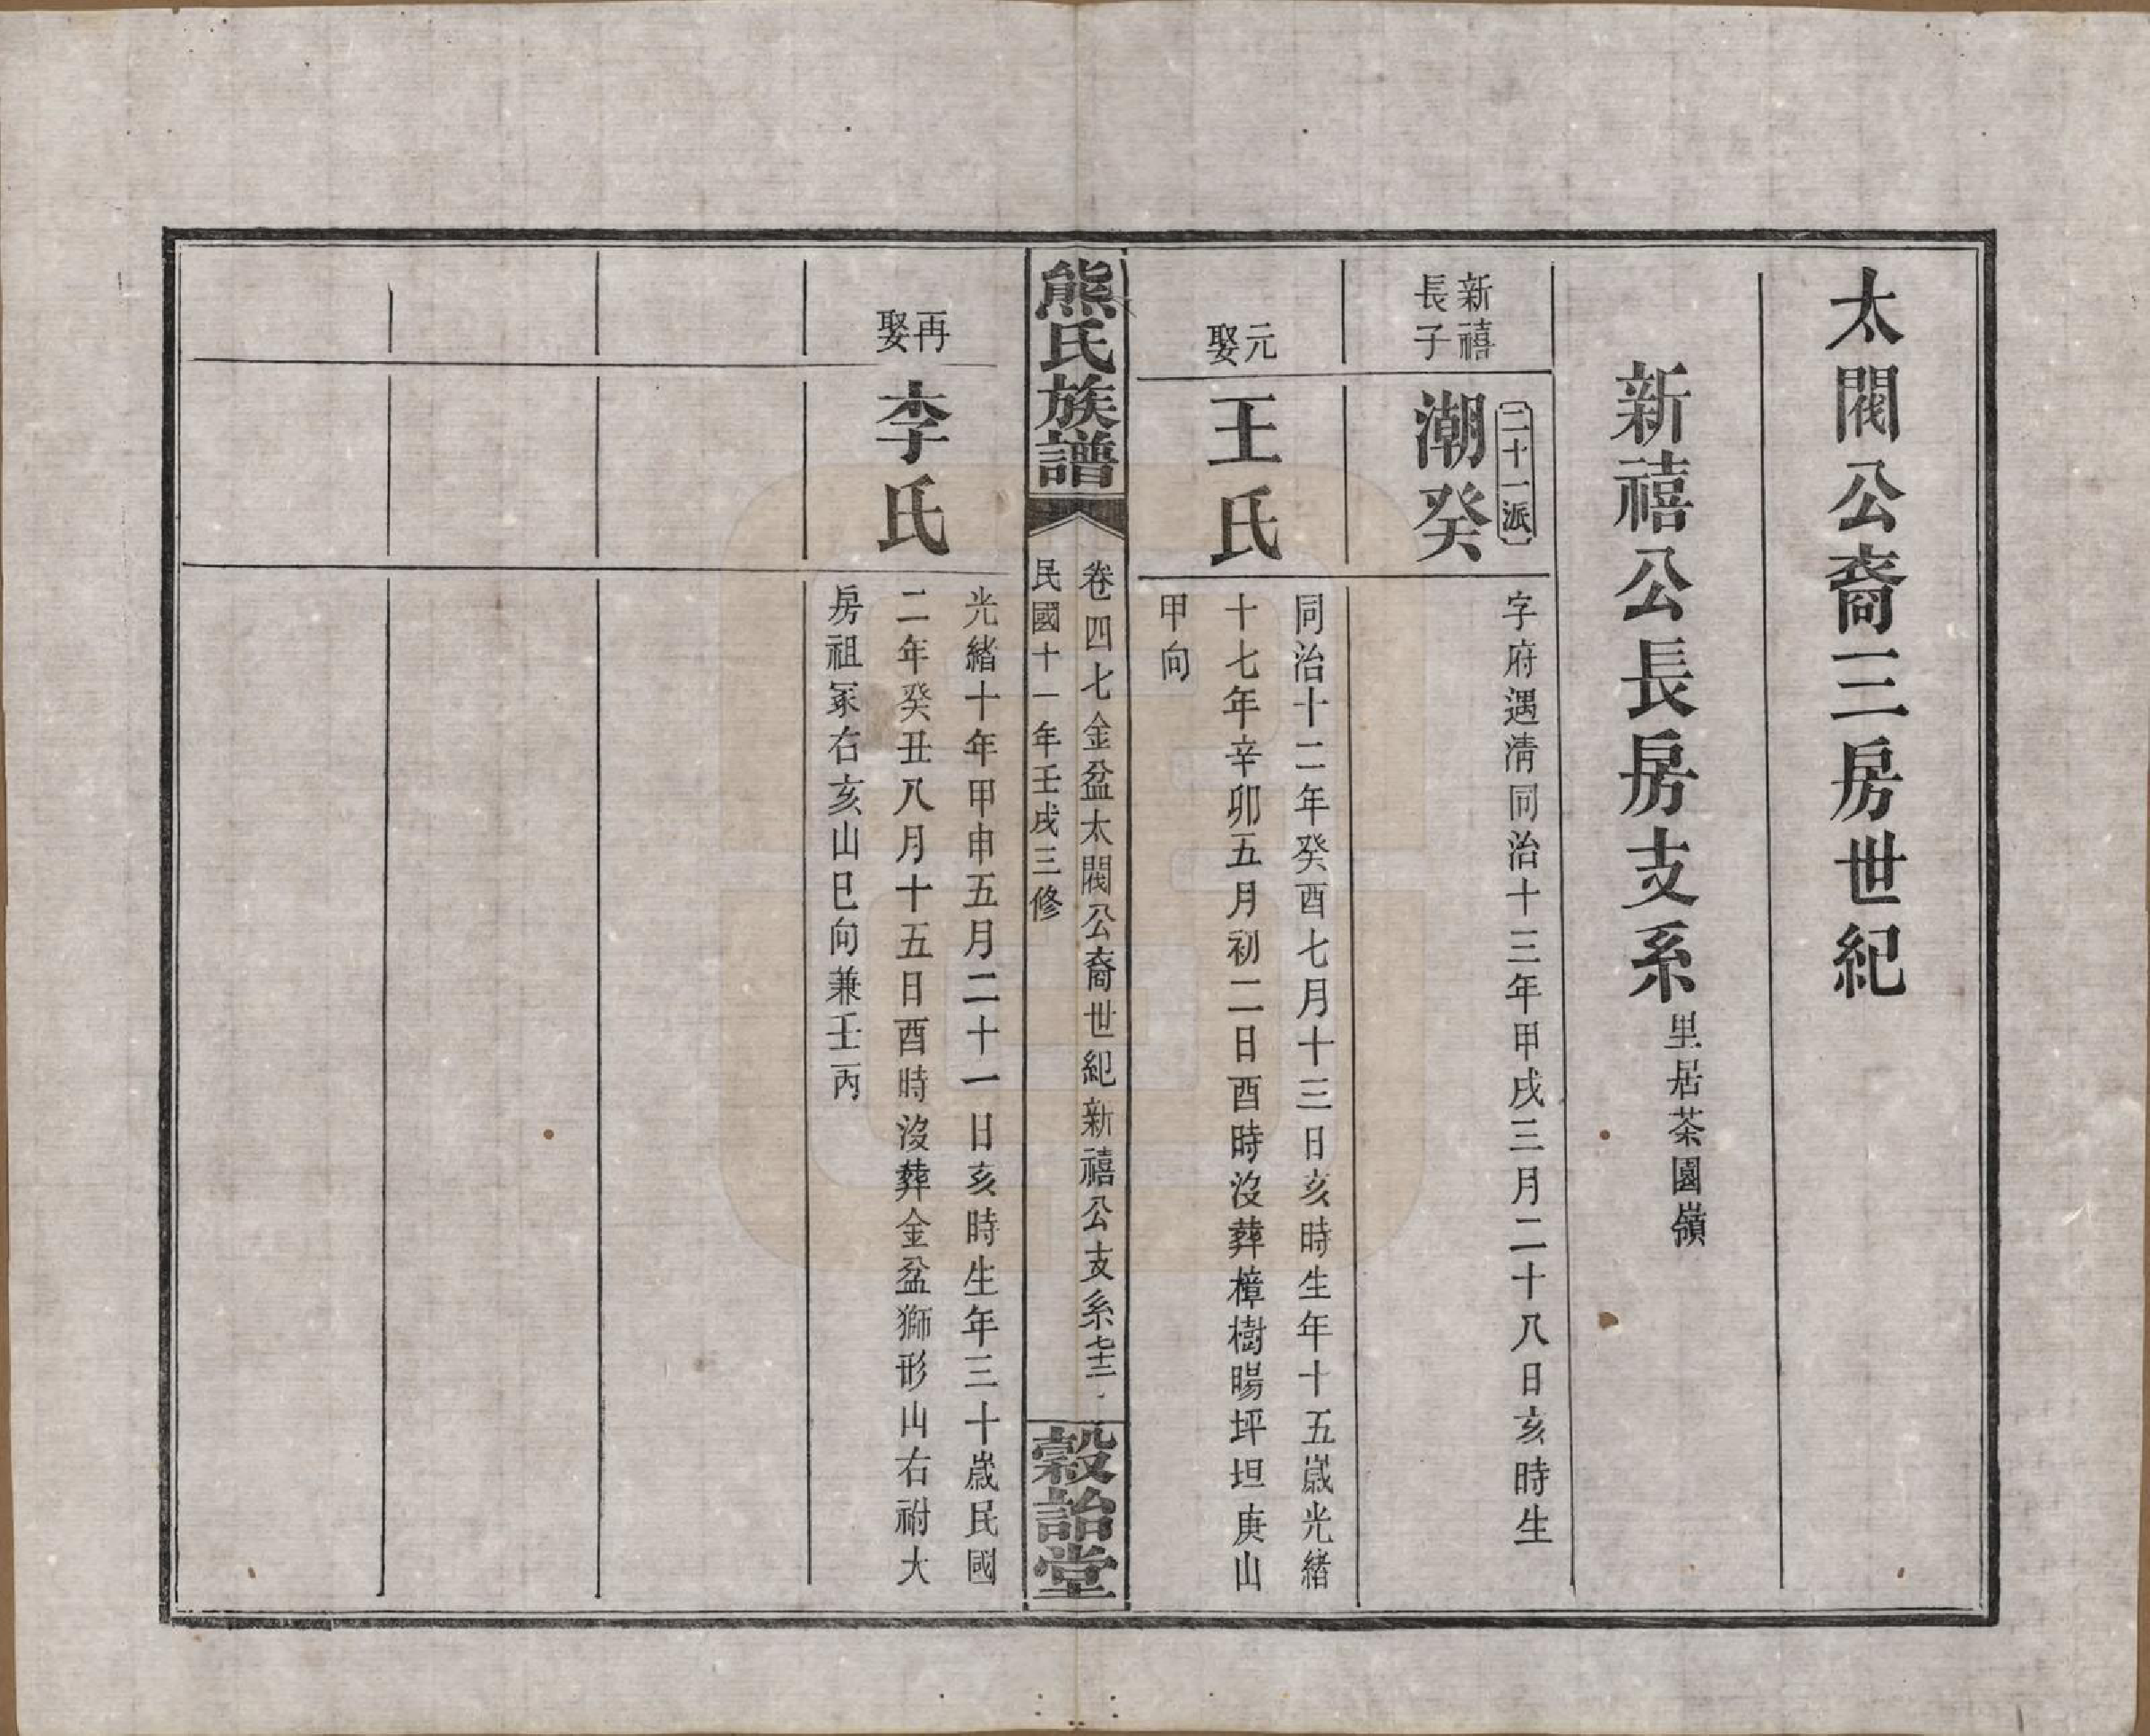 太閥公裔三房世紀
新禧公長房支系
里居茶園嶺
新禧
長子
二十一派
潮癸
字府遇清同治十三年甲戌三月二十八日亥時生
元娶
王氏
同治十二年癸酉七月十三日亥時生年十五歲光緒
十七年辛卯五月初二日酉時沒葬樟樹暘坪坦庚山
甲向
熊氏族譜
卷四七金盆太閥公裔世紀新禧公支系七十三
民國十一年壬戌三修
穀詒堂
再娶
李氏
光緒十年甲申五月二十一日亥時生年三十歲民國
二年癸丑八月十五日酉時沒葬金盆獅形山右祔大
房祖冢右亥山巳向兼壬丙